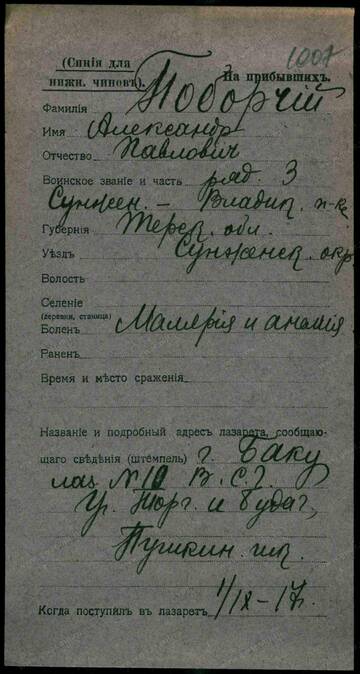 1007
(Синія для
нижн. чиновъ).
На прибывшихъ.
Фамилія Поборчій
Имя Александр
Отчество Павлович
Воинское званіе и часть ряд. 3
Сунжен. - Владик. п-ка
Губернія Терск. обл.
Уѣздъ Сунженск. окр.
Волость
Селеніе
(деревня, станица)
Боленъ Малярия и анемия
Раненъ
Время и мѣсто сраженія
Названіе и подробный адресъ лазарета, сообщаю-
щаго свѣдѣнія (штемпель) г. Баку
лаз. № 10 В. С. Г.
Уг. Торг. и Будаг.,
Пушкин. шк.
Когда поступилъ въ лазаретъ 1/IX-17 г.